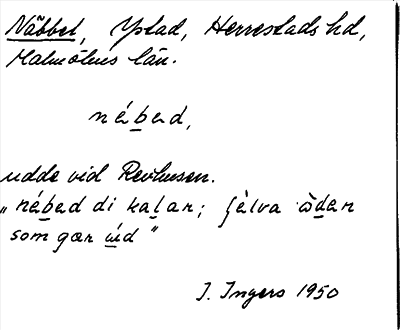 Näbbet, Ystad, Herrestads hd,
Malmöhus län.
nébed,
udde vid Revhusen.
„nébed di kalar; sèlva àden
som gær úd"
I. Ingers 1950